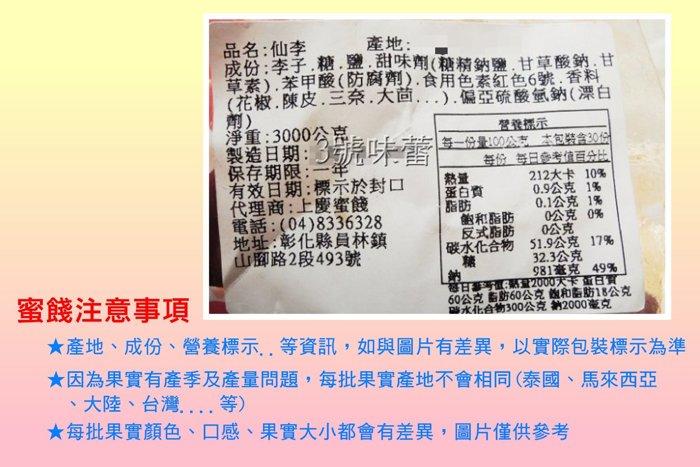 品名:仙李 產地:
成份:李子.糖.鹽.甜味劑(糖精鈉鹽.甘草酸鈉.甘
草素).苯甲酸(防腐劑).食用色素紅色6號.香料
(花椒.陳皮.三奈.大茴...).偏亞硫酸氫鈉(漂白
劑)
淨重:3000公克
製造日期:
3號味蕾
保存期限:一年
有效日期:標示於封口
代理商:上慶蜜餞
電話:(04)8336328
地址:彰化縣員林鎮
山腳路2段493號
營養標示
每一份量100公克 本包裝含30份
每份 每日參考值百分比
熱量 212大卡 10%
蛋白質 0.9公克 1%
脂肪 0.1公克 1%
飽和脂肪 0公克 0%
反式脂肪 0公克
碳水化合物 51.9公克 17%
糖 32.3公克
鈉 981毫克 49%
每日參考值:熱量2000大卡 蛋白質
60公克 脂肪60公克 飽和脂肪18公克
碳水化合物300公克 鈉2000毫克
蜜餞注意事項
★產地、成份、營養標示..等資訊，如與圖片有差異，以實際包裝標示為準
★因為果實有產季及產量問題，每批果實產地不會相同(泰國、馬來西亞
、大陸、台灣....等)
★每批果實顏色、口感、果實大小都會有差異，圖片僅供參考